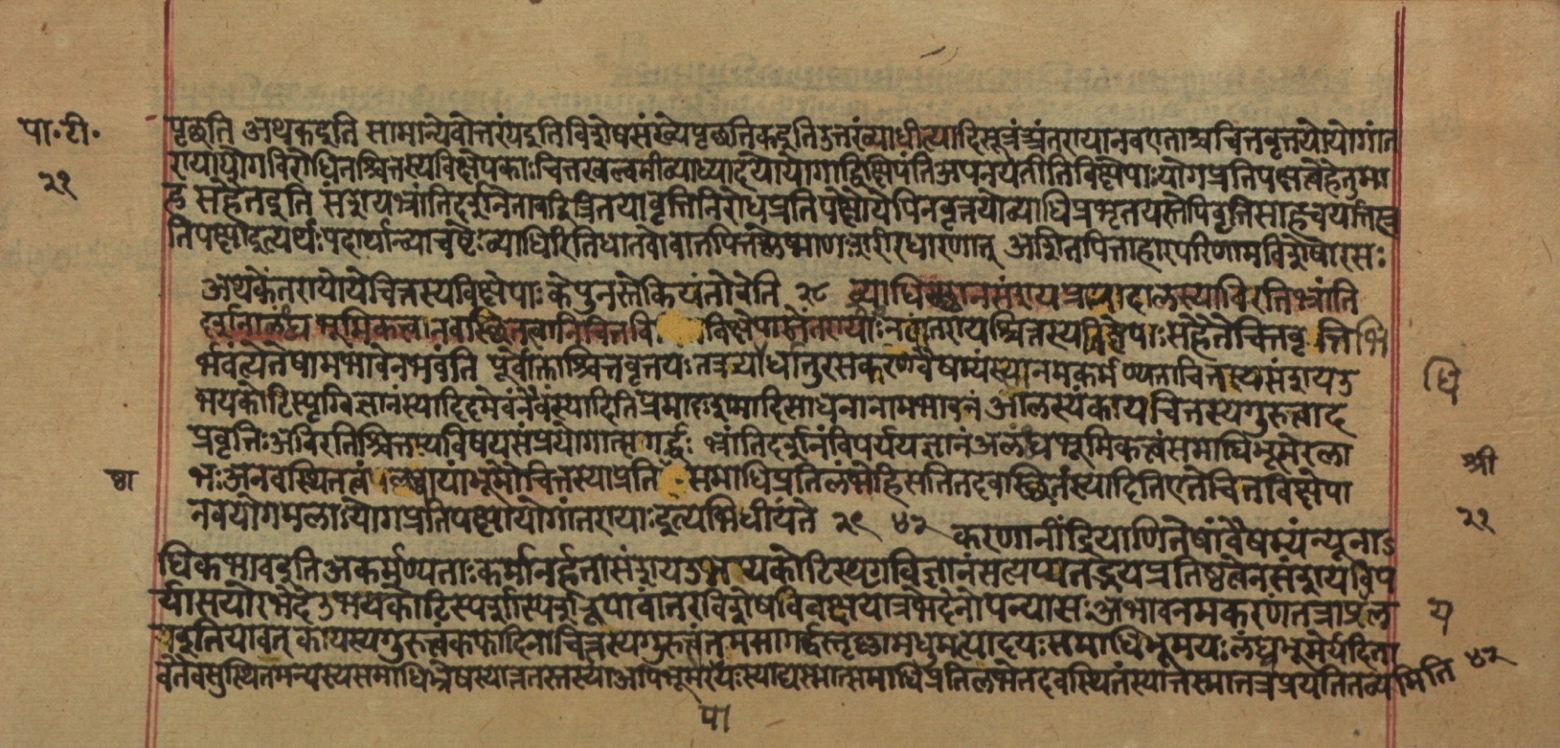 पा॰टी॰
२१
पृछति अथकइति सामान्येवोत्तरंयइतिविशेषसंख्येपृछतिकइतिउत्तरंव्याधीत्यादिसूत्रंअंतरायानवएताश्चचित्तवृत्तयोयोगांत
रायायोगविरोधिनश्चित्तस्यविक्षेपकाःचित्तखल्वमीव्याध्यादयोयोगाद्विक्षिपंतिअपनयंतीतिविक्षेपाःयोगप्रतिपक्षत्वेहेतुमा
ह सहैतइति संशयभ्रांतिदर्शनेतावद्वृत्तितयावृत्तिनिरोधप्रतिपक्षौयेपिनवृत्तयोव्याधिप्रभृतयस्तेपिवृत्तिसाहचर्यात्तत्प्र
तिपक्षाइत्यर्थःपदार्थान्व्याचष्टेःव्याधिरितिधातवोवातपित्तश्लेष्माणःशरीरधारणात् अशितपित्ताहारपरिणामविशेषोरसः
अथकेंतरायायेचित्तस्यविक्षेपाः केपुनस्तेकियंतोवेति २८ व्याधिस्त्यानसंशयप्रमादालस्याविरतिभ्रांति
दर्शनालब्धभूमिकत्वानवस्थितत्वानिचित्तवि विक्षेपास्तेंतरायाः नवांतरायश्चित्तस्यविक्षेपाः सहैतेचित्तवृत्तिभि
र्भवंत्यतेषामभावेनभवंति पूर्वोक्ताश्चित्तवृत्तयः तत्रव्याधिर्धातुरसकरणवैषम्यंस्त्यानमकर्मण्यताचित्तस्यसंशयउ
भयकोटिस्पृग्विज्ञानंस्यादिदमेवंनैवंस्यादितिप्रमादःसमाधिसाधनानामभावनं आलस्यंकायचित्तस्यगुरुत्वाद
प्रवृत्तिःअविरतिश्चित्तस्यविषयसंप्रयोगात्मागर्द्धः भ्रांतिदर्शनंविपर्ययज्ञानंअलब्धभूमिकत्वंसमाधिभूमेरला
भःअनवस्थितत्वंलब्धायांभूमौचित्तस्याप्रति समाधिप्रतिलंभेहिसतितदवस्थितंस्यादितिएतेचित्तविक्षेपा
नवयोगमलायोगप्रतिपक्षायोगांतरायाःइत्यभिधीयंते २९ ४२ करणानींद्रियाणितेषांवैषम्यंन्यूना
धिकभावइतिअकर्मण्यताःकर्मानर्हतासंशयउभयकोटिस्पृग्विज्ञानंसत्यप्यतद्रूपप्रतिष्ठत्वेनसंशयविप
र्यासयोरभेदेउभयकोटिस्पर्शास्पर्शरूपावांतरविशेषविवक्षयात्रभेदेनोपन्यासःअभावनमकरणंतत्राप्रल
इतियावत् कायस्यगुरुत्वंकफादिनाचित्तस्यगुरुत्वंतमसागर्द्धस्तृष्णामधुमत्यादयःसमाधिभूमयःलब्धभूमेर्यदिता
वतैवसुस्थितमन्यस्यसमाधिभ्रेषस्यात्ततस्तस्याअपिभूमेरपायःस्याद्यस्मात्समाधिप्रतिलंभेतदवस्थितंस्यात्तस्मात्तत्रप्रयतितव्यमिति ४२
धि
ष्ठा
श्री
२१
य
पा